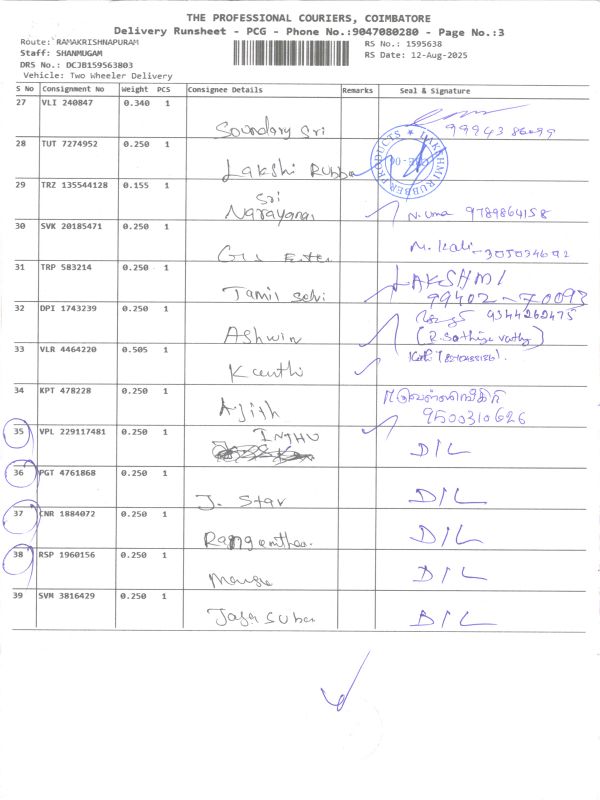 THE PROFESSIONAL COURIERS, COIMBATORE
Delivery Runsheet - PCG - Phone No.:9047080280 - Page No.:3
Route: RAMAKRISHNAPURAM RS No.: 1595638
Staff: SHANMUGAM RS Date: 12-Aug-2025
DRS No.: DCJB159563803
Vehicle: Two Wheeler Delivery
S No Consignment No Weight PCS Consignee Details Remarks Seal & Signature
27 VLI 240847 0.340 1
Soundary Sri 9994386099
28 TUT 7274952 0.250 1
Lakshi Rubba LAKSHMI RUBBER PRODUCTS
29 TRZ 135544128 0.155 1
Sri
Narayanan N. uma 9789864158
30 SVK 20185471 0.250 1
M. Kali
31 TRP 583214 0.250 1 LAKSHMI
Tamil selvi 99402-70093
32 DPI 1743239 0.250 1 9344262475
Ashwin
33 VLR 4464220 0.505 1
Kanthi
34 KPT 478228 0.250 1
Ajith 9500310626
35 VPL 229117481 0.250 1
D/L
36 PGT 4761868 0.250 1
J. Star D/L
37 CNR 1884072 0.250 1
D/L
38 RSP 1960156 0.250 1
D/L
39 SVM 3816429 0.250 1
D/L